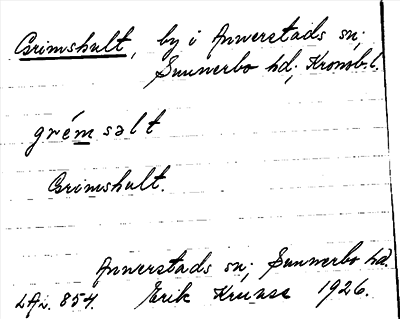 Grimshult, by i Annerstads sn;
Sunnerbo hd; Kronob. l.
grémsalt
Grimshult.
Annerstads sn; Sunnerbo hd.
LAL. 854. Erik Kruuse 1926.